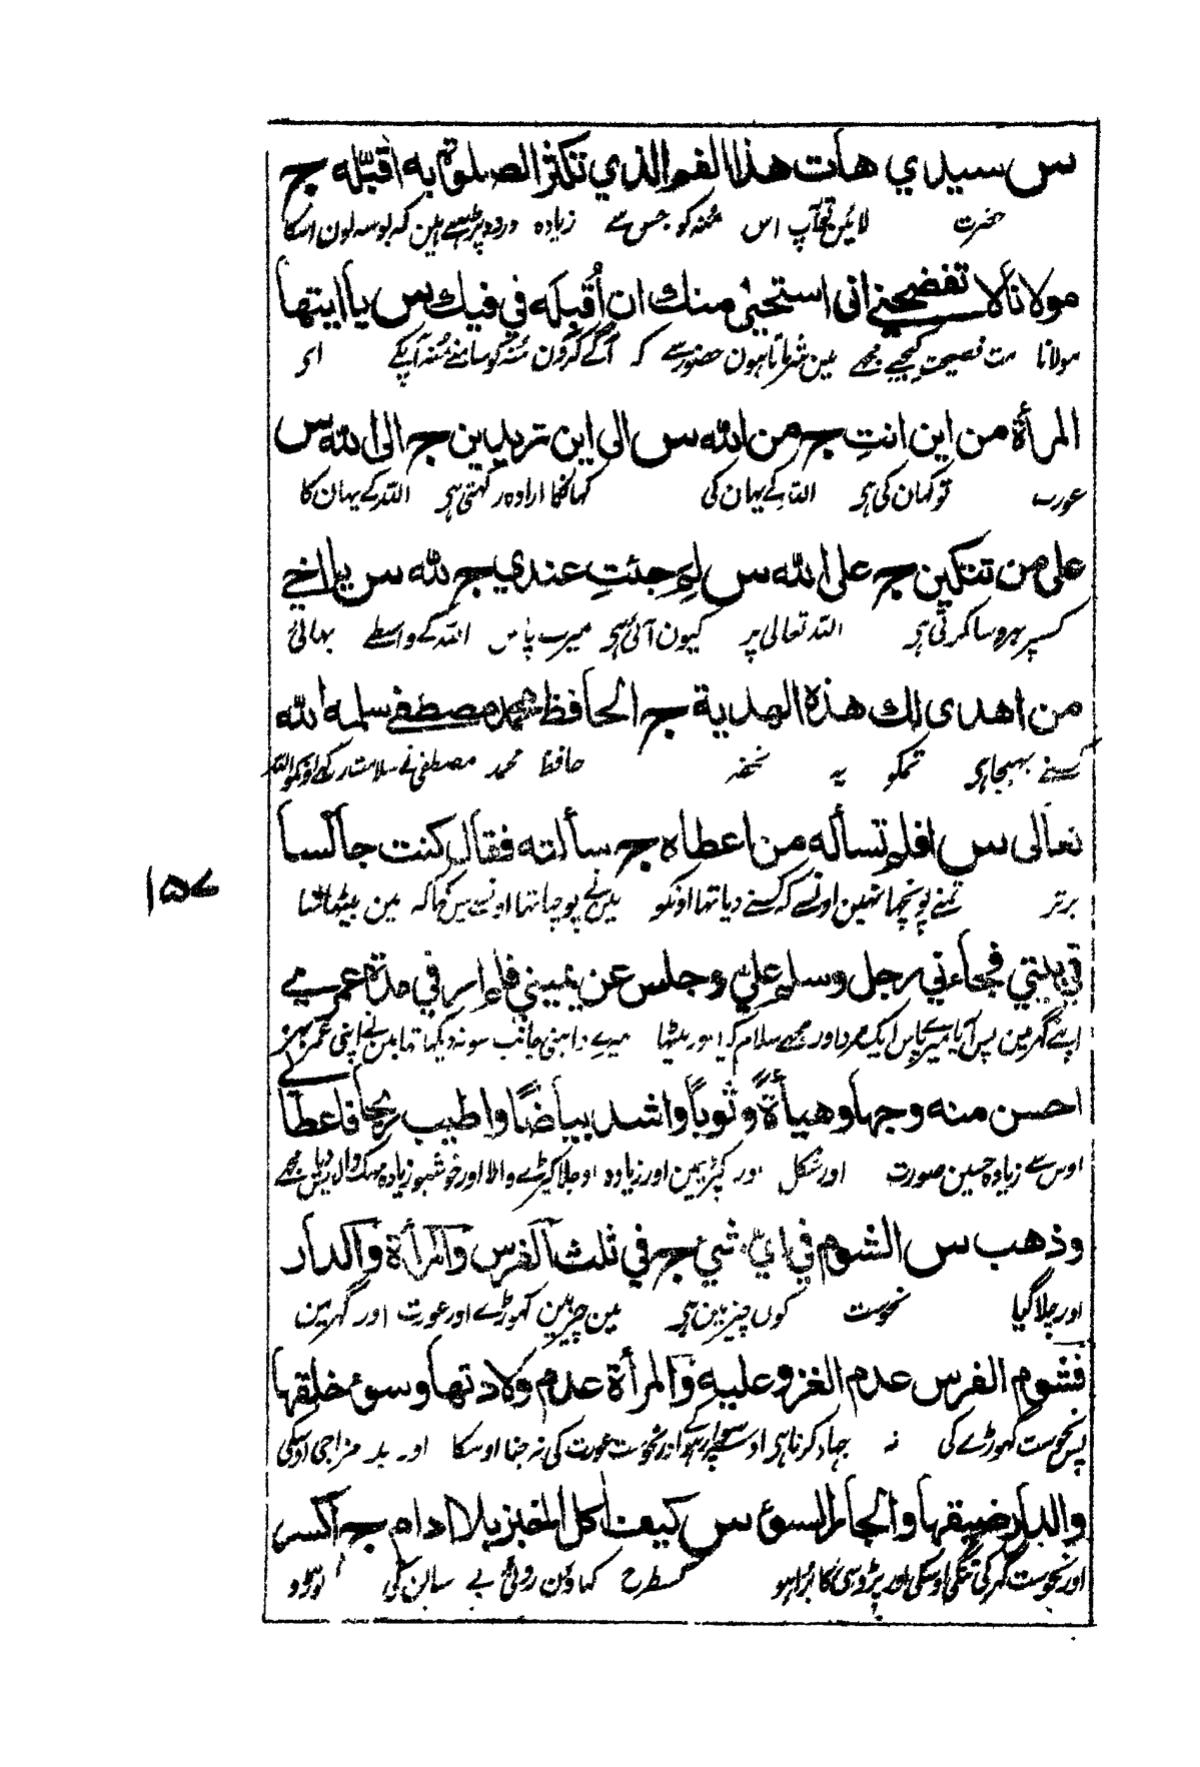 س سيدي هات هذا الفم الذي تكثر الصلوة به اقبّله ج
حضرت لائیں آپ اس منہ کو جس سے زیادہ درود پڑہتے ہین کہ بوسہ لون اسکا
مولانا لا تفضحني انى استحيٖ منك ان اُقبله في فيك س يا ايتها
مولانا مت فضیحت کیجیے مجھے مین شرماتا ہون حضور سے کہ آگے کرون منہ کو سامنے منہ آپکے ای
المرأة من اين انتِ ج من الله س الى اين تريدين ج الى الله س
عورت تو کہان کی ہی اللہ کے یہان کی کہانکا ارادہ رکہتی ہی اللہ کے یہان کا
على من تتكلين ج على الله س لم جئتِ عندي ج لله س يا اخي
کسپر بہروسا کرتی ہی اللہ تعالی پر کیون آئی ہی میرے پاس اللہ کے واسطے بہائی
من اهدى لك هذه الهدية ج الحافظ محمد مصطفى سلمه الله
کسنے بہیجا ہی تمکو یہ تحفہ حافظ محمد مصطفی نے سلامت رکہے اونکو اللہ
تعالى س افلم تسأله من اعطاه ج سألته فقال كنت جالسا
برتر تمنے پونچہا نہین اونسے کہ کسنے دیا تہا اونکو مین نے پوچہا تہا اونسے پس کہا کہ مین بیٹہا تہا
في بيتي فجاءني رجل وسلم عليّ وجلس عن يميني فلم ار في مدة عمري
اپنے گہر مین پس آیا میرے پاس ایک مرد اور مجھے سلام کیا اور بیٹہا میرے داہنی جانب سو نہ دیکہا تہا مین نے اپنی عمر بہر
احسن منه وجها وهيأةً وثوباً واشد بياضًا واطيب ريحا فاعطاني
اوس سے زیادہ حسین صورت اور شکل اور کپڑیمین اور زیادہ اوجلا کپڑے والا اور خوشبو زیادہ مہک والا پس دیا مجھے
وذهب س الشوم في ايّ شئ ج في ثلث الفرس والمرأة والدار
اور چلا گیا نحوست کون چیز مین ہی تین چیز مین گہوڑے اور عورت اور گہر مین
فشوم الفرس عدم الغزو عليه والمرأة عدم ولادتها وسوء خلقها
پس نحوست گہوڑے کی نہ جہاد کرنا ہی اوسپر سوار ہوکے اور نحوست عورت کی نہ جننا اوسکا اور بد مزاجی اوسکی
والدار ضيقها والجار السوء س كيف اكل الخبز بلا ادام ج اكسر
اور نحوست گہر کی تنگی اوسکی اور پڑوسی کا برا ہو کسطرح کہاؤن روٹی بے سالن کی توڑو
۱۵۷